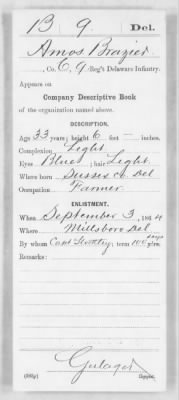 B 9 Del.
Amos Brazier
, Co. C, 9 Reg't Delaware Infantry.
Appears on
Company Descriptive Book
of the organization named above.
DESCRIPTION.
Age 33 years; height 6 feet — inches.
Complexion Light
Eyes Blue; hair Light.
Where born Sussex Co. Del
Occupation Farmer
ENLISTMENT.
When September 3, 1864
Where Millsboro Del
By whom Capt ; term 100 days y'rs.
Remarks:
Copyist.